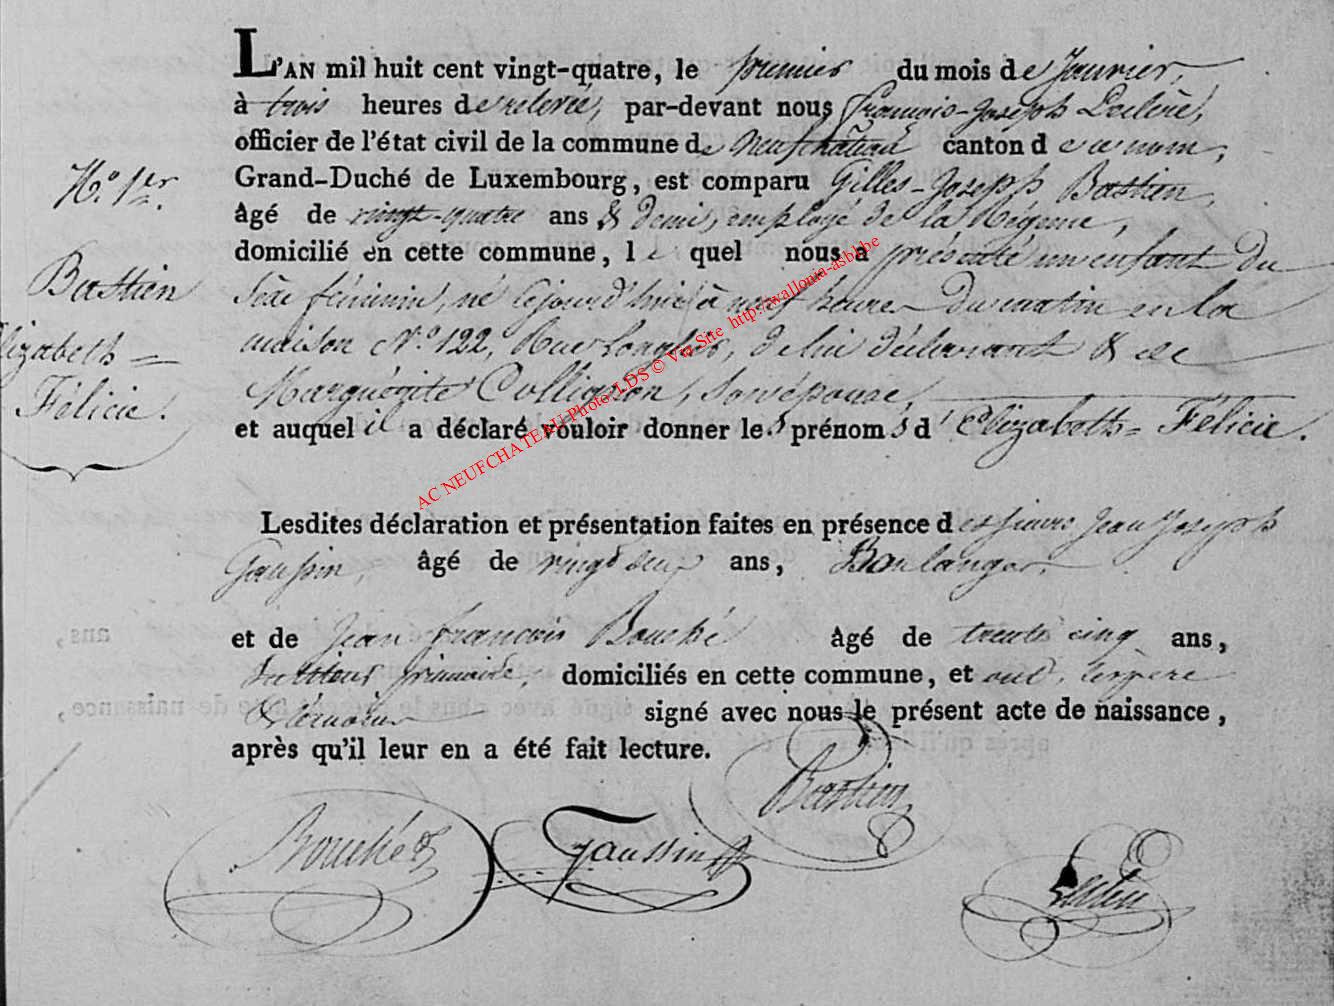 L'AN mil huit cent vingt-quatre, le premier du mois de Janvier,
à trois heures de relevée, par-devant nous François-Joseph
officier de l'état civil de la commune de Neufchâteau canton d e ce nom,
N.° 1.er
Grand-Duché de Luxembourg, est comparu Gilles-Joseph Bastien,
âgé de vingt-quatre ans & demi, employé de la Régence,
domicilié en cette commune, le quel nous a présenté un enfant du
Bastien
Sèxe féminin, né cejourd'hui à neuf heures du matin en la
Elizabeth =
maison N.° 122, Rue Longlier, de lui déclarant & de
Félicie.
Marguérite Collignon, son épouse,
et auquel il a déclaré vouloir donner les prénoms d'Elizabeth = Félicie.
AC NEUFCHATEAU Photo. LDS © Via Site http://wallonia-asbl.be
Lesdites déclaration et présentation faites en présence des sieurs Jean Joseph
Gaussin, âgé de vingt deux ans, Boulanger,
et de Jean François Bouché âgé de trente cinq ans,
primaire, domiciliés en cette commune, et ont, le père
& témoins signé avec nous le présent acte de naissance,
après qu'il leur en a été fait lecture.
Bastien
Bouché
Gaussin